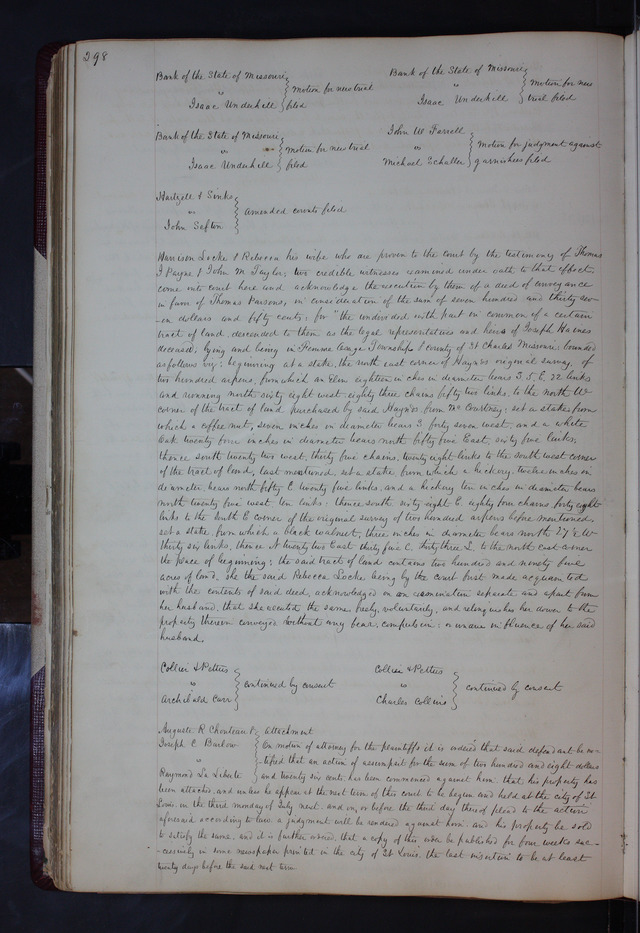 298
Bank of the State of Missouri
"
Isaac Underhill
motion for new trial
filed
Bank of the State of Missouri
"
Isaac Underhill
motion for new
trial filed
Bank of the State of Missouri
vs
Isaac Underhill
motion for new trial
filed
John W Farrell
vs
Michael Schaller
motion for judgment against
garnishees filed
Hartzell & Sinks
vs
John Sefton
amended counts filed
Harrison Locke & Rebecca his wife who are proven to the court by the testimony of Thomas
J Payne & John M Taylor, two credible witnesses examined under oath to that effect
come into court here and acknowledge the execution by them of a deed of conveyance
in favor of Thomas Parsons, in consideration of the sum of seven hundred and thirty sev-
-en dollars and fifty cents; for "the undivided sixth part in common of a certain
tract of land, descended to them as the legal representatives and heirs of Joseph Haines
deceased, lying and being in Femme Osage Township & county of St Charles Missouri; bounded
as follows viz; beginning at a stake, the north east corner of Haynes original survey, of
two hundred arpens, from which an Elm eighteen inches in diameter bears S. 5, E, 22 links
and running north sixty eight west eighty three chains fifty two links, to the north W
corner of the tract of land purchased by said Haynes from Wm Courtney; set a stake from
which a coffee nut, seven inches in diameter bears S forty seven west, and a white
oak twenty four inches in diameter bears north fifty five East, sixty five links,
thence south twenty two west, thirty five chains, twenty eight links to the south west corner
of the tract of land, last mentioned, set a stake from which a hickory, twelve inches in
diameter, bears north fifty E twenty five links, and a hickory ten inches in diameter bears
north twenty five west ten links; thence south sixty eight E. eighty four chains forty eight
links to the South E corner of the original survey of two hundred arpens before mentioned,
set a stake, from which a black walnut, three inches in diameter bears north 27 W
thirty six links, thence N twenty two East thirty five C. thirty three L. to the north east corner
the place of beginning; the said tract of land contains two hundred and ninety five
acres of land. She the said Rebecca Locke being by the court first made acquainted
with the contents of said deed, acknowledged on an examination separate and apart from
her husband, that she executed the same, freely, voluntarily, and relinquishes her dower to the
property therein conveyed without any fear, compulsion, or undue influence of her said
husband.
Collier & Pettus
vs
Archibald Carr
continued by consent
Collier & Pettus
vs
Charles Collins
continued by consent
Auguste R Chouteau &
Joseph C Barlow
vs
Raymond La Liberte
attachment
On motion of attorney for the plaintiffs it is ordered that said defendant be no-
-tified that an action of assumpsit for the sum of two hundred and eight dollars
and twenty six cents has been commenced against him, that his property has
been attached, and unless he appear at the next term of this court to be begun and held at the city of St
Louis, on the third monday of July next and on or before the third day thereof plead to the action
aforesaid according to law a judgment will be rendered against him and his property be sold
to satisfy the same, and it is further ordered, that a copy of this order be published for four weeks suc-
-cessively in some newspaper printed in the city of St Louis, the last insertion to be at least
twenty days before the said next term